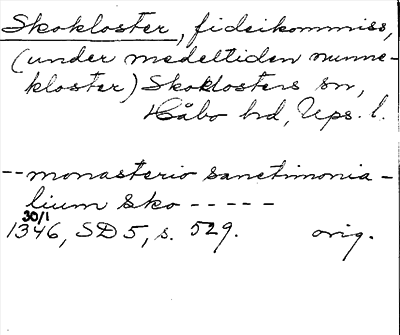 Skokloster, fideikommiss,
(under medeltiden nunne-
kloster) Skoklosters sn,
Håbo hd, Ups. l.
--monasterio sanctimonia-
lium Sko -----
30/1
1346, SD 5, s. 529. orig.